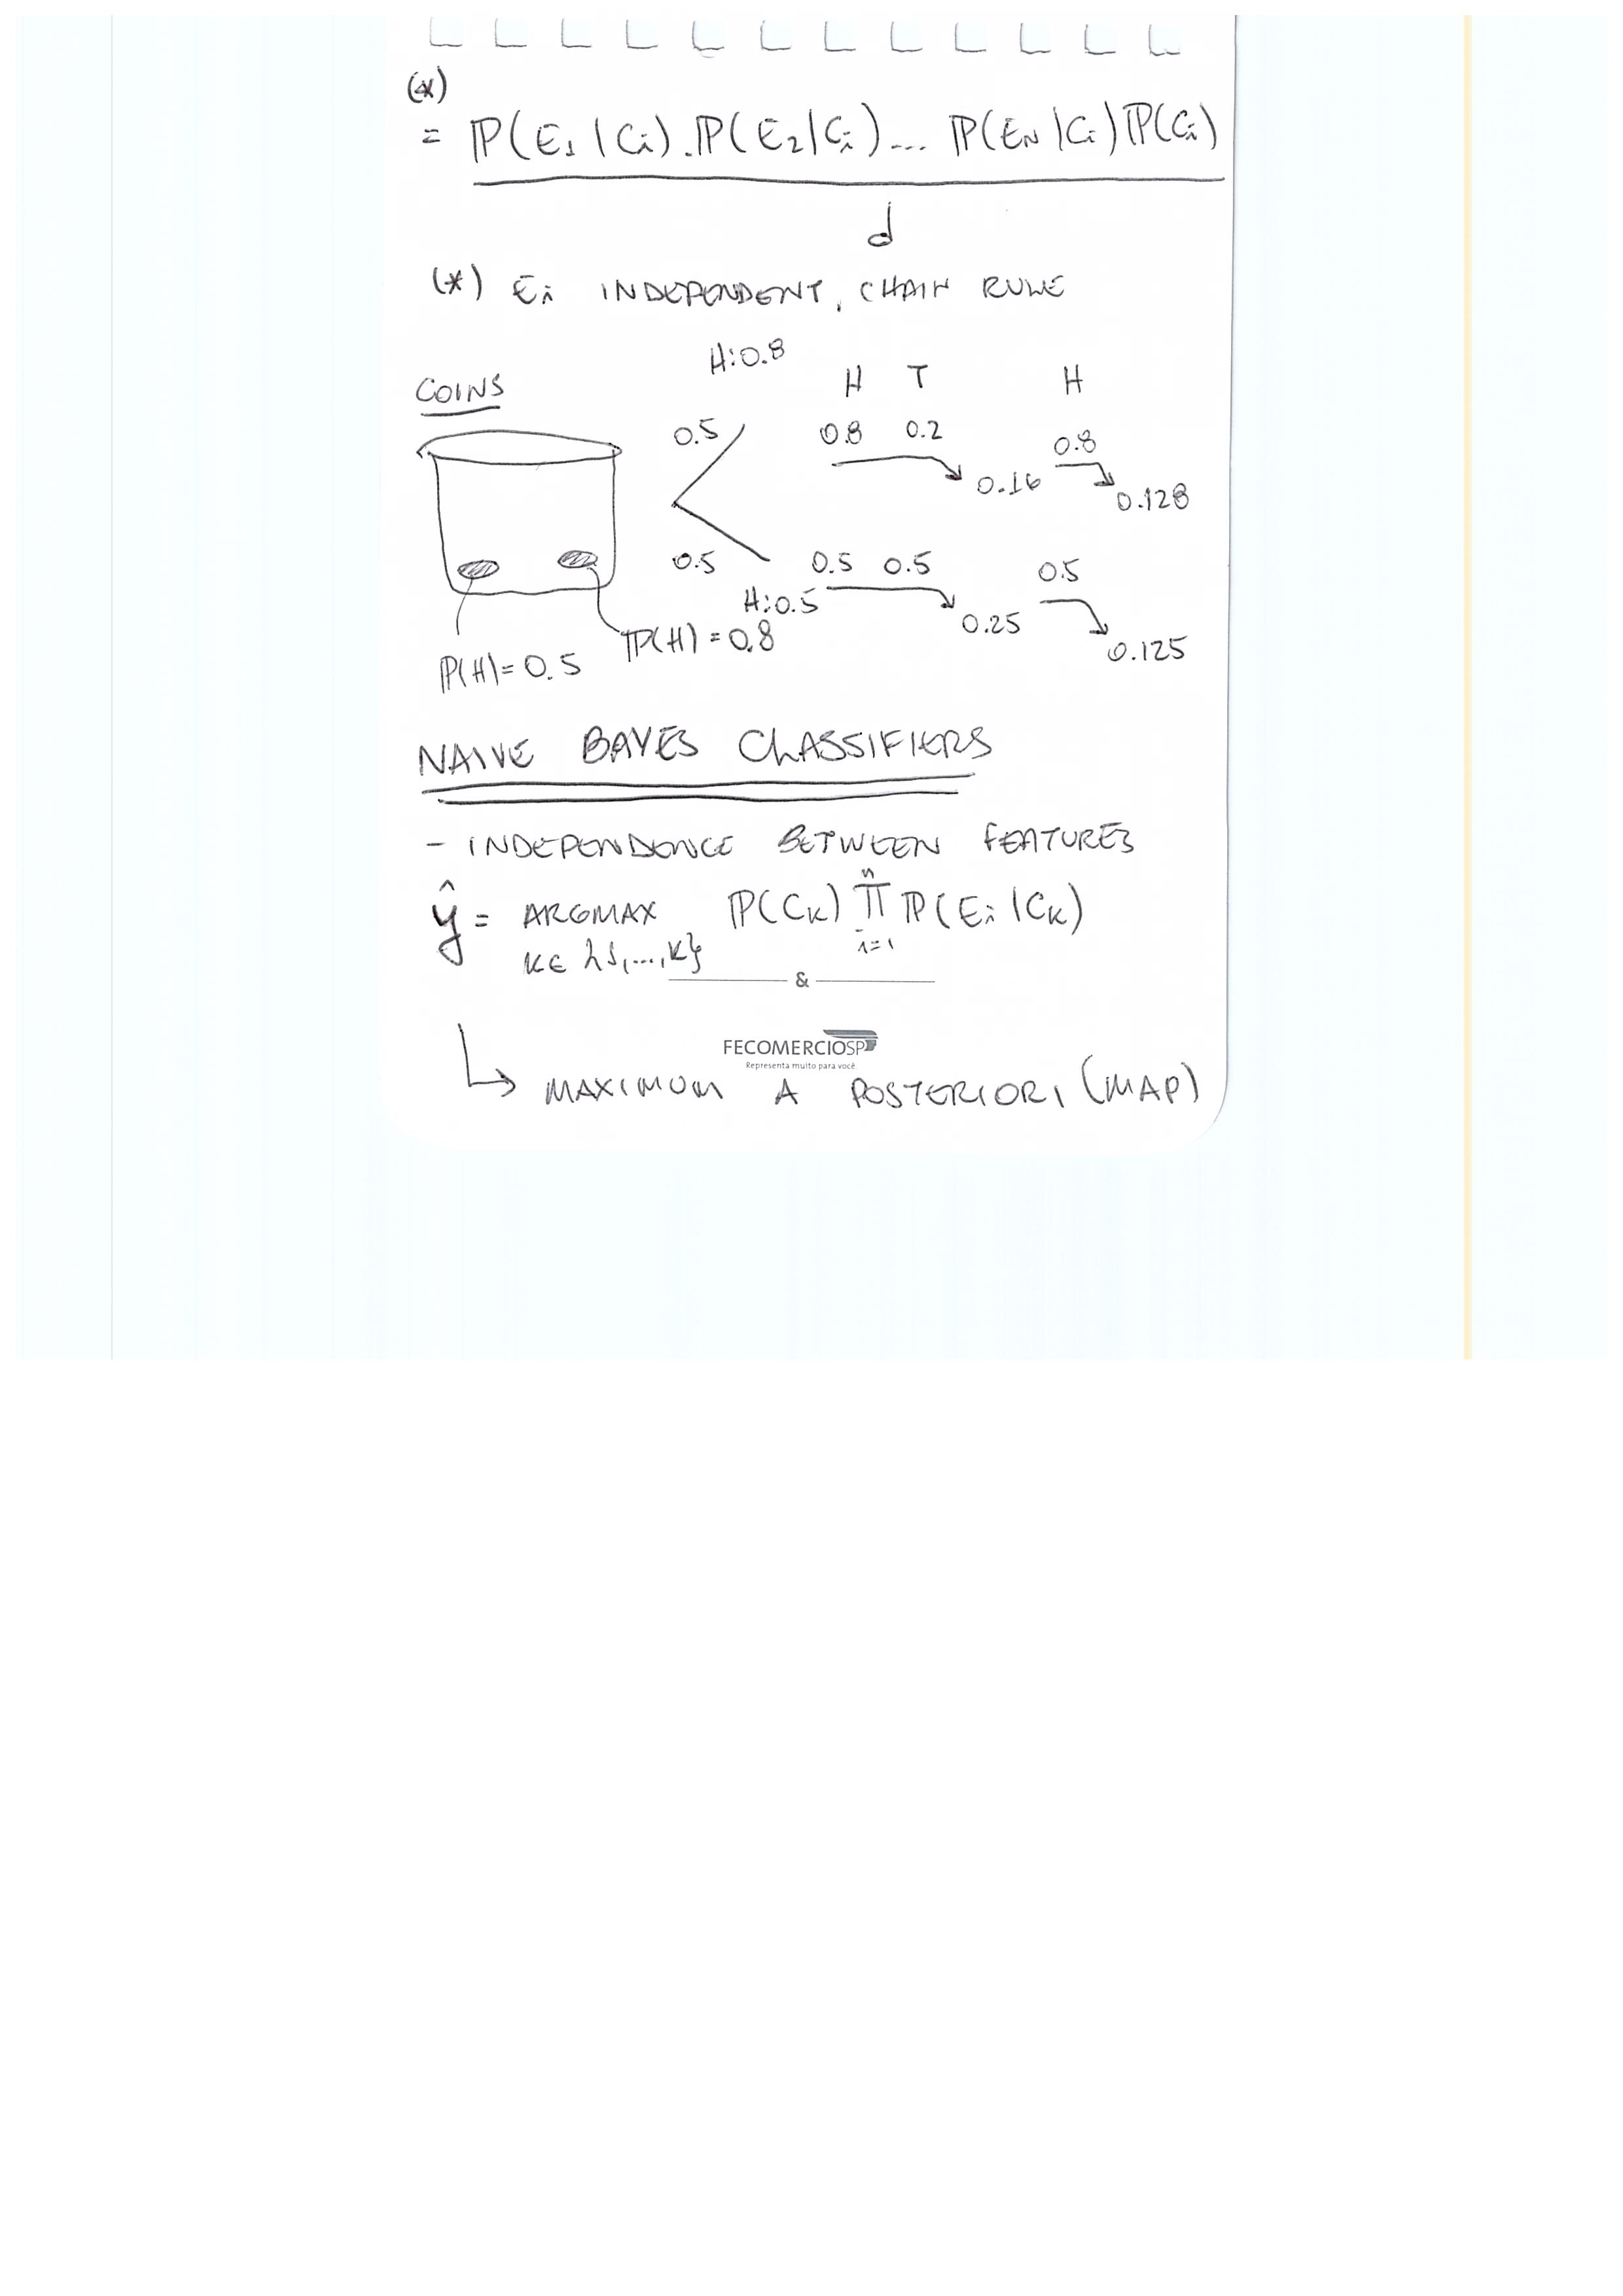 (*)
= ℙ(E1|Ci).ℙ(E2|Ci)... ℙ(EN|Ci)ℙ(Ci)
d
(*) Ei INDEPENDENT, CHAIN RULE
COINS
H:0.8
H T H
0.5 0.8 0.2 0.8
0.16 0.128
0.5 0.5 0.5 0.5
H:0.5 0.25 0.125
ℙ(H)=0.5 ℙ(H)=0.8
NAIVE BAYES CLASSIFIERS
- INDEPENDENCE BETWEEN FEATURES
ŷ = ARGMAX ℙ(CK) n∏i=1 ℙ(Ei|CK)
K∈{1,...,K}
&
FECOMERCIOSP
Representa muito para você.
↳ MAXIMUM A POSTERIORI (MAP)